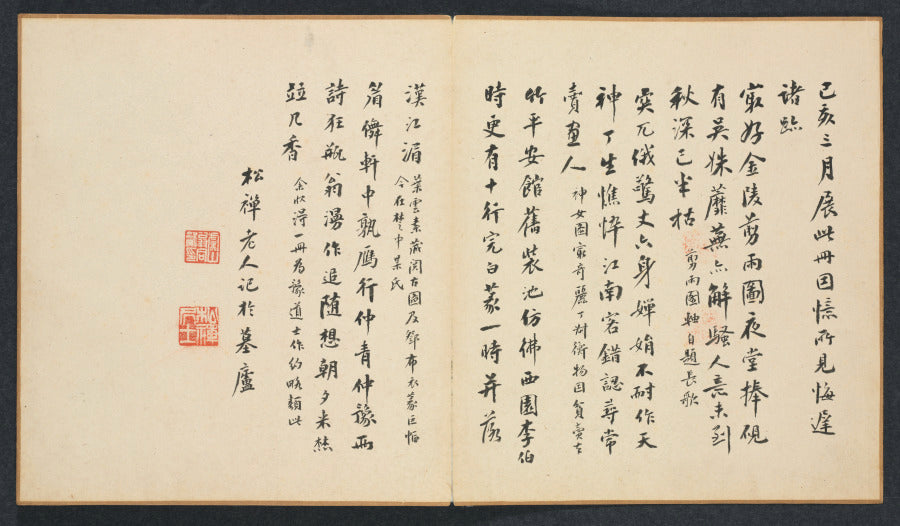 己亥三月展此冊因憶所見悔遲
諸跡
最好金陵剪雨圖夜堂捧硯
有吳姝蘼蕪亦解騷人意未到
秋深已半枯 剪雨圖軸自題長歌
突兀俄驚丈六身嬋娟不耐作天
神丁生憔悴江南客錯認尋常
賣畫人 神女圖最奇麗丁對衡物因貧賣去
竹平安館舊裝池仿佛西園李伯
時更有十行完白篆一時并落
漢江湄 葉雲素藏閱古圖及鄧布衣篆巨幅
今在楚中某氏
眉僊軒中孰雁行仲青仲豫兩
詩狂瓶翁漫作追隨想朝夕米𥻘
並几香 余收得一冊為豫道士作約略類此
松禪老人記於墓廬
松禪居士